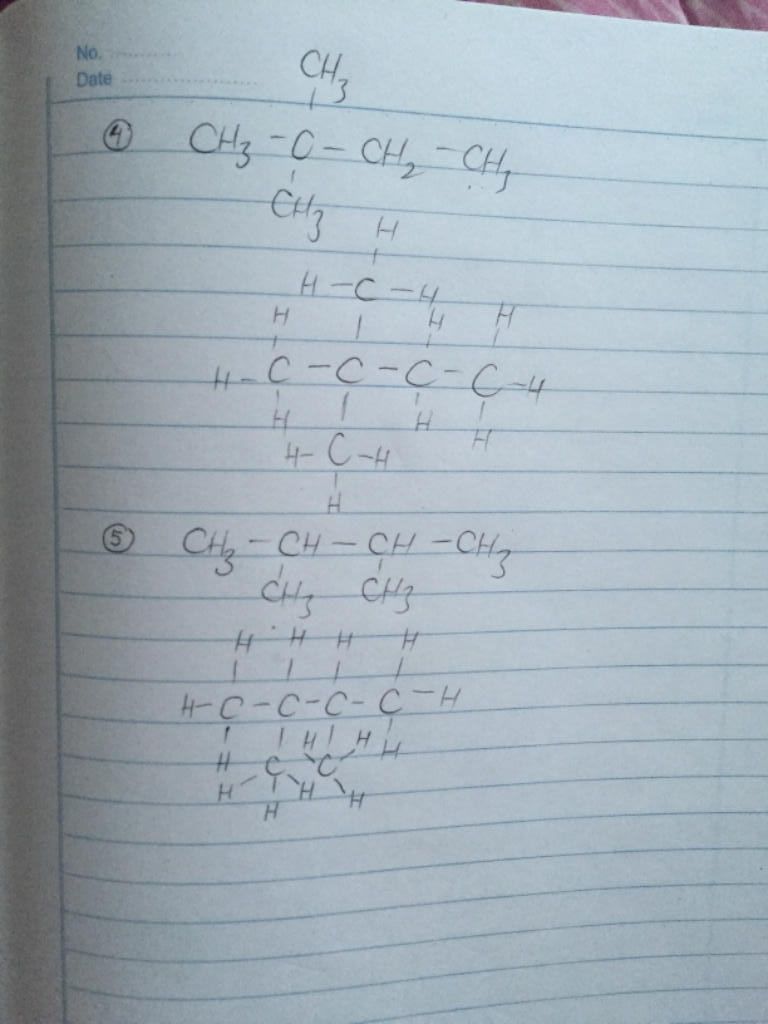 No.
Date
CH3
④ CH3 - C - CH2 - CH3
CH3
H
H - C - H
H H H
H - C - C - C - C - H
H H H
H - C - H
H
⑤ CH3 - CH - CH - CH3
CH3 CH3
H H H H
H - C - C - C - C - H
H H H H
C C
H H H
H